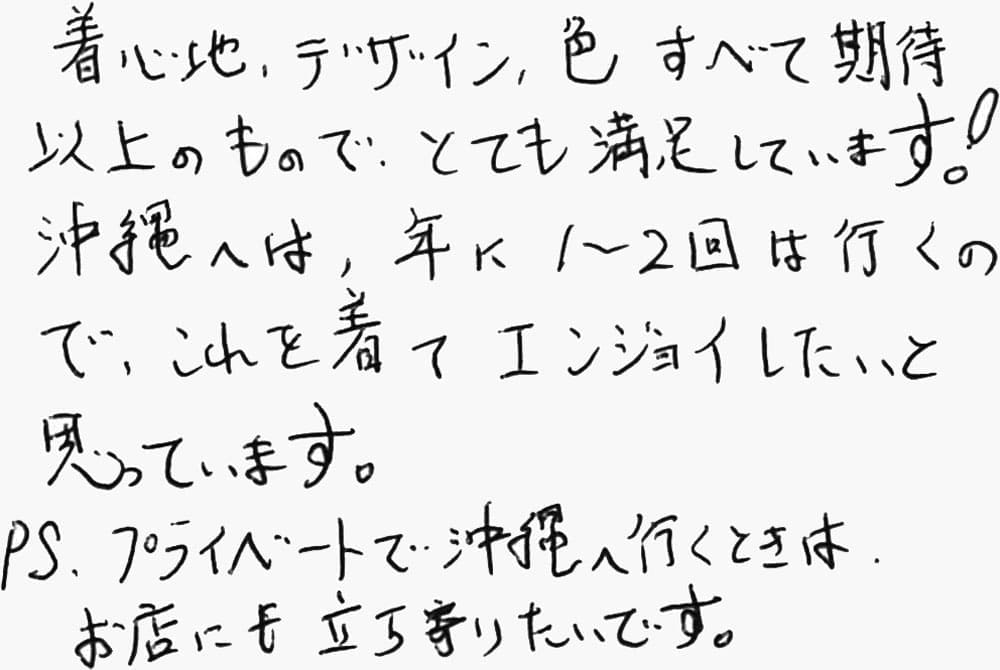 着心地、デザイン、色 すべて期待
以上のもので、とても満足しています!
沖縄へは、年に1〜2回は行くの
で、これを着てエンジョイしたいと
思っています。
PS、プライベートで沖縄へ行くときは、
お店にも立ち寄りたいです。